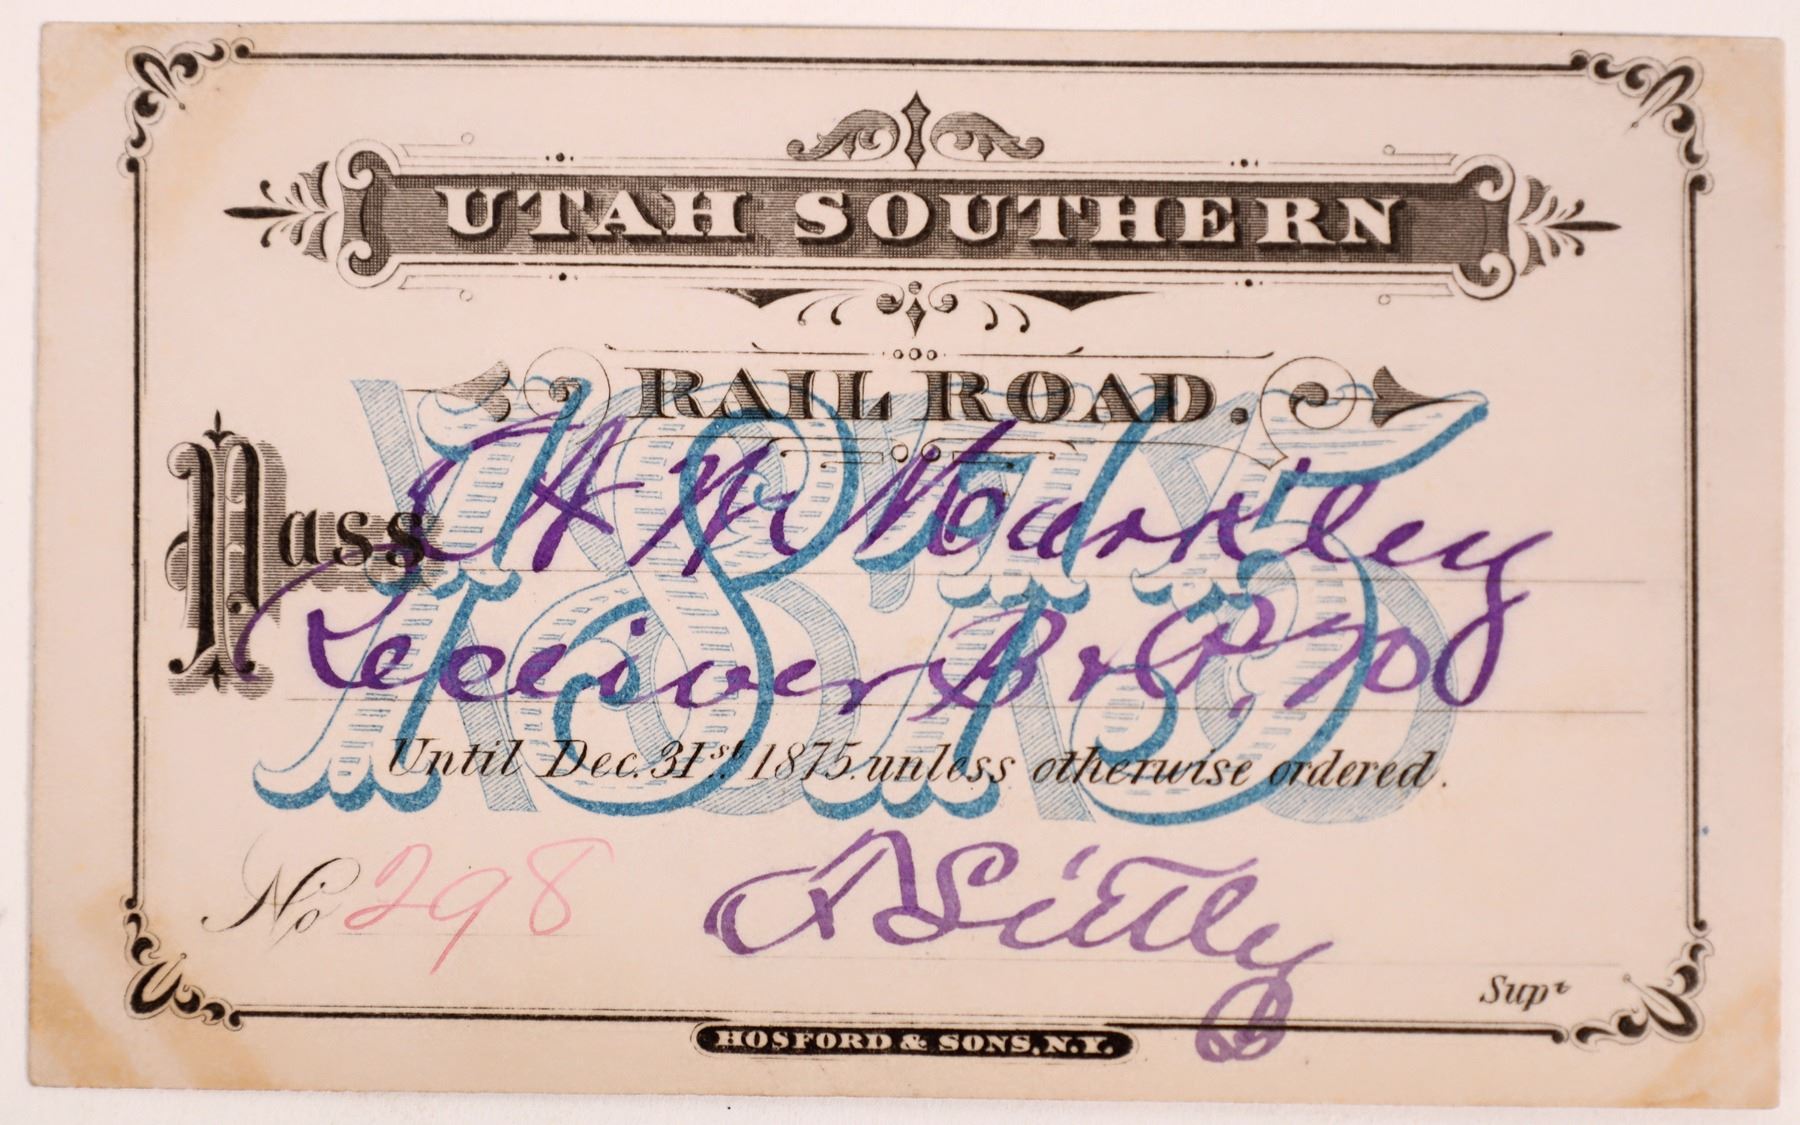 UTAH SOUTHERN
RAIL ROAD.
1875
Pass A. H. Markley
Receiver
Until Dec. 31st. 1875. unless otherwise ordered.
No 298
Supt
HOSFORD & SONS, N.Y.